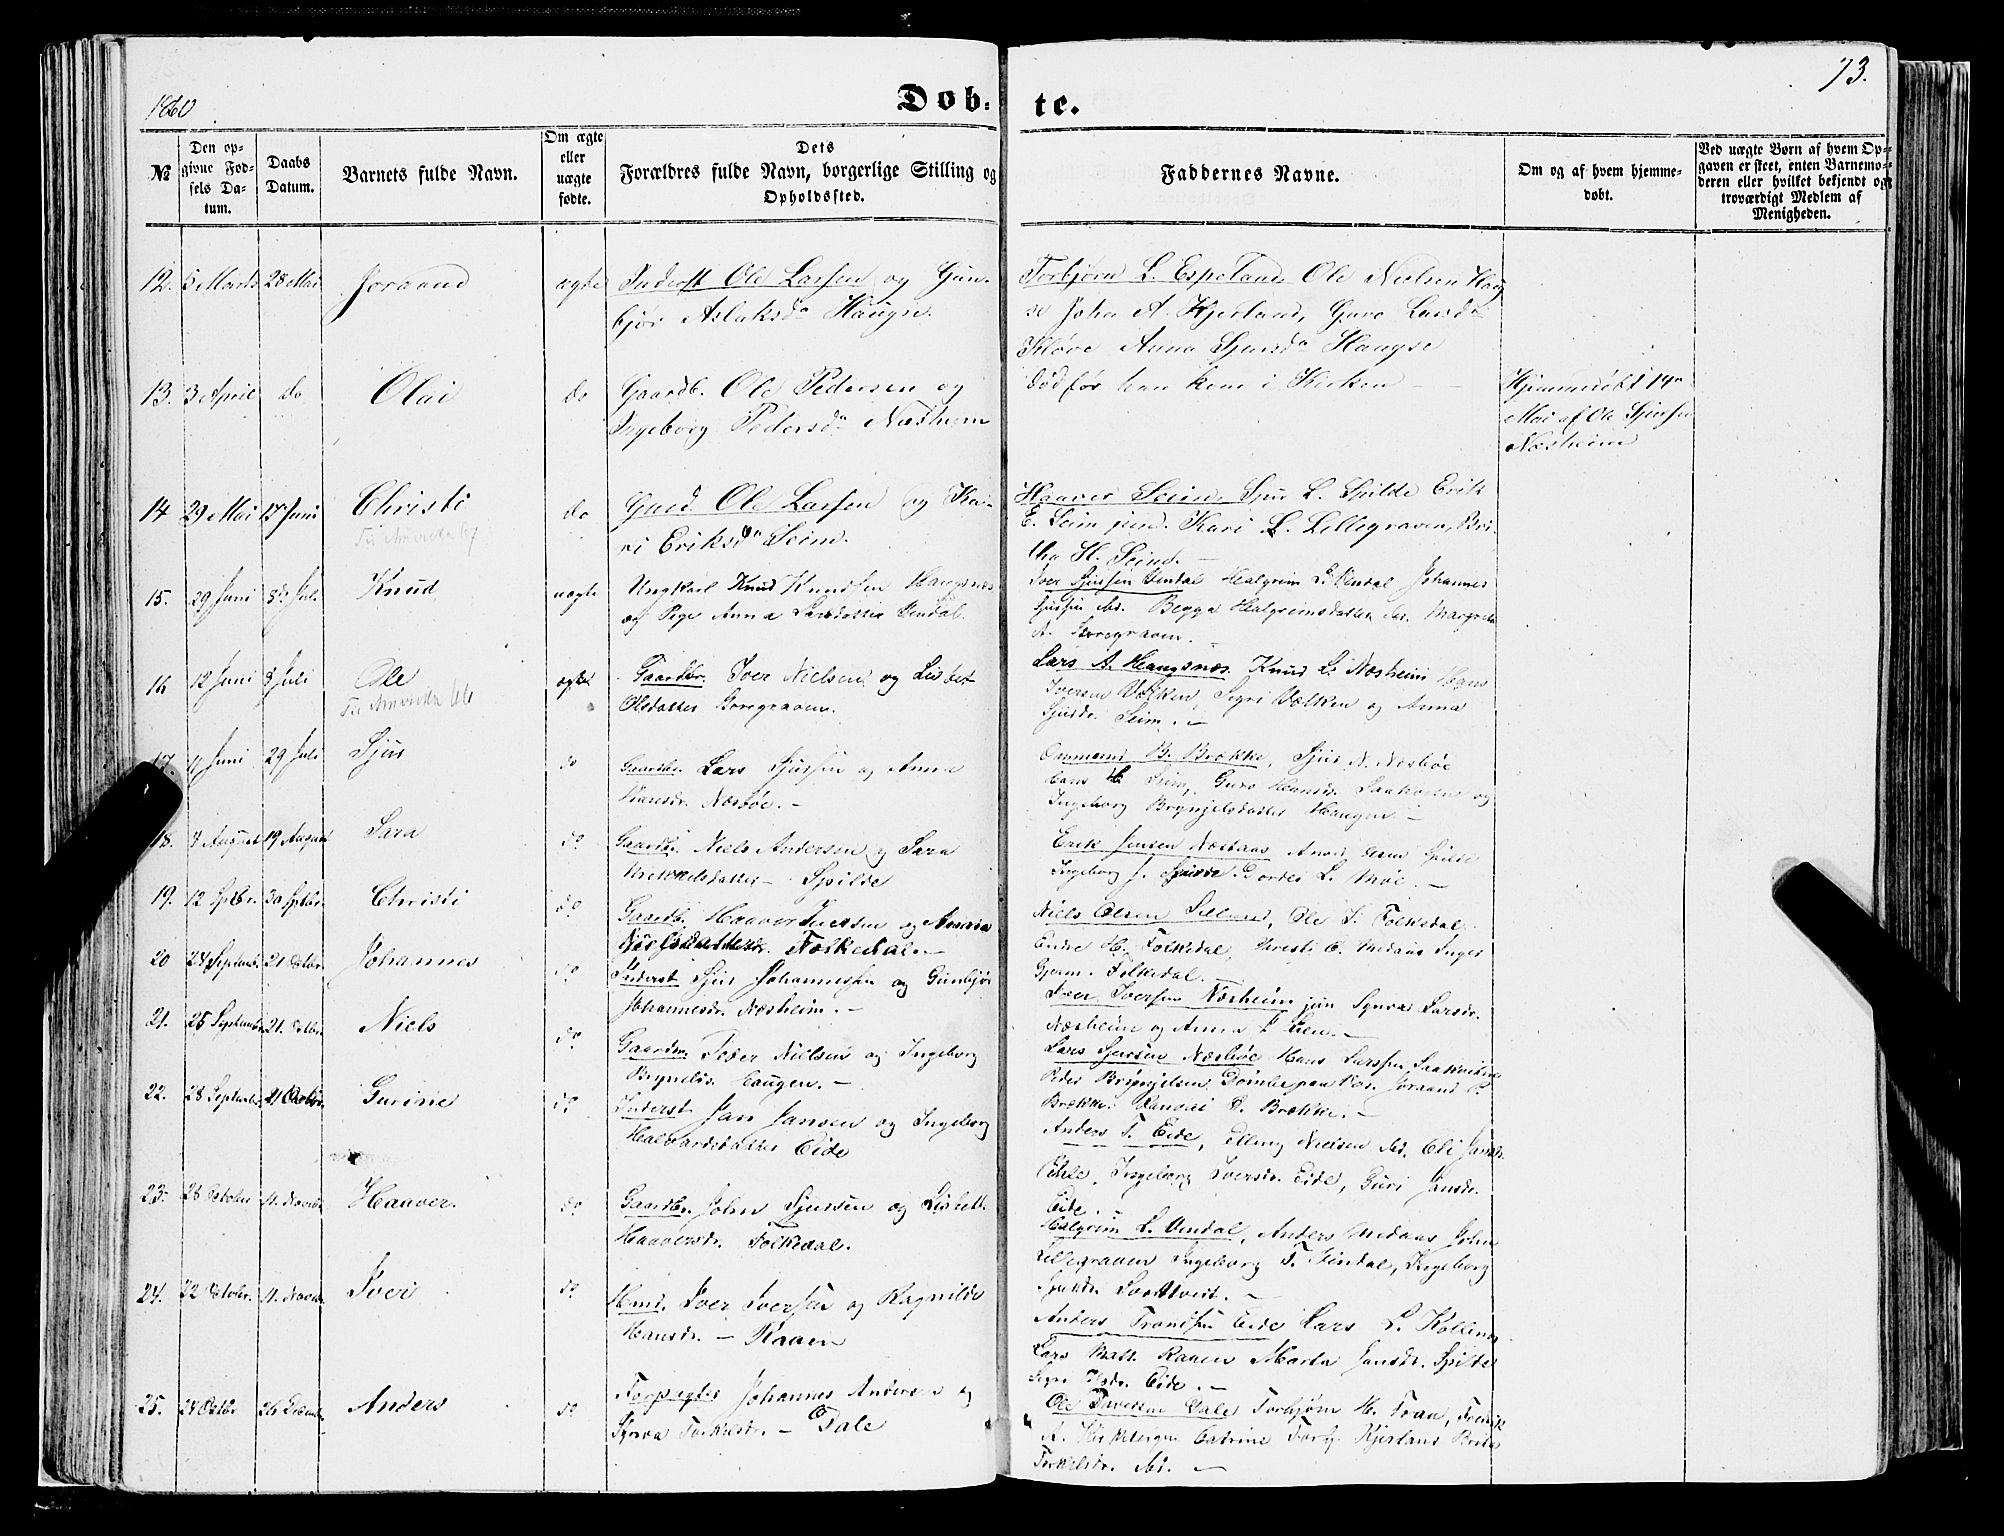 1860
Døb-
te.
73.
№
Den op-
givne Fød-
sels Da-
tum.
Daabs
Datum.
Barnets fulde Navn.
Om ægte
eller
uægte
fødte.
Dets
Forældres fulde Navn, borgerlige Stilling og
Opholdssted.
Faddernes Navne.
Om og af hvem hjemme-
døbt.
Ved uægte Børn af hvem Op-
gaven er skeet, enten Barnemo-
deren eller hvilket bekjendt og
troværdigt Medlem af
Menigheden.
12. 5 Marts 28 Mai Joraand ægte Inderst Ole Larsen og Gun-
bjør Aslaksdr Haugse.
Torbjørn L. Espeland, Ole Nielsen Haug
se John A. Hjerland, Guro Larsdr
Kløve Anna Sjursdr Haugse
13. 3 April do Olai do Gaardb. Ole Pedersen og
Ingeborg Pedersdr Næsheim
død før han kom i Kirken
Hjemmedøbt 14n
Mai af Ole Sjursen
Næsheim
14 29 Mai 17 Juni Christi do Gaard Ole Larsen og Ka-
Til Amerika 67
ri Eriksdr Seim.
Haaver Seim, Sjur L. Spilde Erik
E. Seim jun. Kari L. Lillegraven, Bri-
tha H. Seim.
15. 29 Juni 8de Juli Knud uægte Ungkarl Knud Knudsen Haugsnæs
og Pige Anna Larsdatter Vendal.
Iver Sjursen Vendal Halgrim L. Vendal Johannes
Sjursen ibd. Begga Halgrimsdatter ibd. Margreta
A. Storegraven.
16 12 Juni 8 Juli Ole ægte Gaardbr. Iver Nielsen og Lisbet
Til Amerika 66
Olsdatter Storegraven.
Lars A. Haugsnæs. Knud L. Næsheim Hans
Iversen Vælken, Sigri Vælken og Anna
Sjursdr. Seim.
17. 4 Juni 29 Juli Sjur do Gaardbr. Lars Sjursen og Anna
Hansdr. Næsbøe.
Ommund B. Brække, Sjur N. Næsbøe
Hans H Seim, Guro Hansdr. Saakvitn og
Ingeborg Brynjelsdatter Haugen
18. 7 August 19 August Sara do Gaardbr. Niels Andersen og Sara
Mikkelsdatter Spilde
Erik Jensen Næsaas Spilde
Ingeborg J. Spilde. Dordei L. Møe.
19. 12 Sptbr. 30 Sptbr. Christi do Gaardb. Haaver Iversen og Anna
Nielsdatter Folkedal.
Niels Olsen Selland, Ole I. Folkedal
Endre H. Folkedal, Kristi O. Medaas Inger
Gjerm. Folkedal.
20 24 Septemb. 21 Octbr. Johannes do Inderst Sjur Johannessen og Gunbjør
Johannesdr. Næsheim.
Iver Iversen Næsheim jun Synva Larsdr.
Næsheim og Anna
21. 25 Septembr. 21. Octbr. Niels do Gaardbr. Peder Nielsen og Ingeborg
Brynelsdr. Haugen.
Lars Sjursen Næsbøe Hans Larssen Saakvitn
Peder Brynjelsen Dømbe paa Vos. Joraand P.
Brække. Ranvei B. Brække.
22. 28 Septembr. 21 Octbr. Gurine do Inderst Jan Jansen og Ingeborg
Halvardsdatter Eide
Anders T. Eide, Elling Nielsen ibd. Oli Jansdr.
Ingeborg Iversdr. Eide, Guri Jansdr.
Eide.
23. 26 October 11. Novbr. Haaver. do Gaardbr. John Sjursen og Lisbet
Haaversdr. Folkedal.
Halgrim L. Vendal, Anders Medaas John
Lillegraven Ingeborg T. Vendal, Ingeborg
24. 22 Octobr. 11. Novbr. Iver do Hmd. Iver Iversen og Ragnilde
Hansdr. Raaen
Anders Trondsen Eide Lars L. Kollenes
Lars Raaen Marta Jansdr. Spilde
Eide.
25. 24 Octbr. 26 Decemb. Anders do Forpagter Johannes Andersen og
Synva Torkelsdr. Dale
Ole Iversen Dale Torbjørn H. Traa,
A. Catrine Torbj. Kjerland Brita
Torkelsdr. ibd.